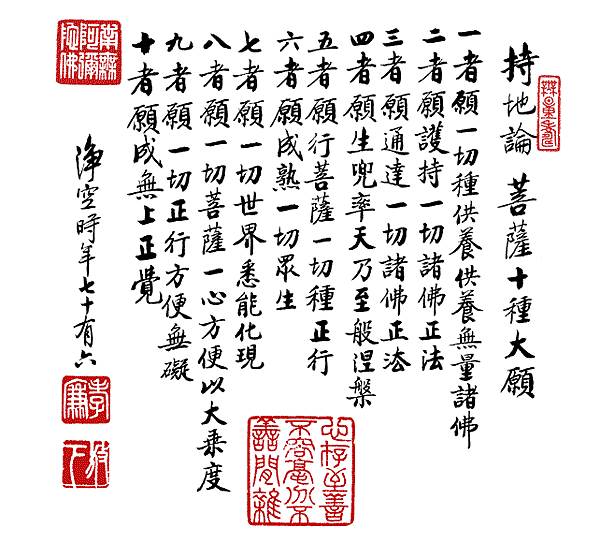 持地論 菩薩十種大願
一者願一切種供養供養無量諸佛
二者願護持一切諸佛正法
三者願通達一切諸佛正法
四者願生兜率天乃至般涅槃
五者願行菩薩一切種正行
六者願成熟一切眾生
七者願一切世界悉能化現
八者願一切菩薩一心方便以大乘度
九者願一切正行方便無礙
十者願成無上正覺
淨空時年七十有六
南無
阿彌
陀佛
心存至善
不容毫分不
善間雜